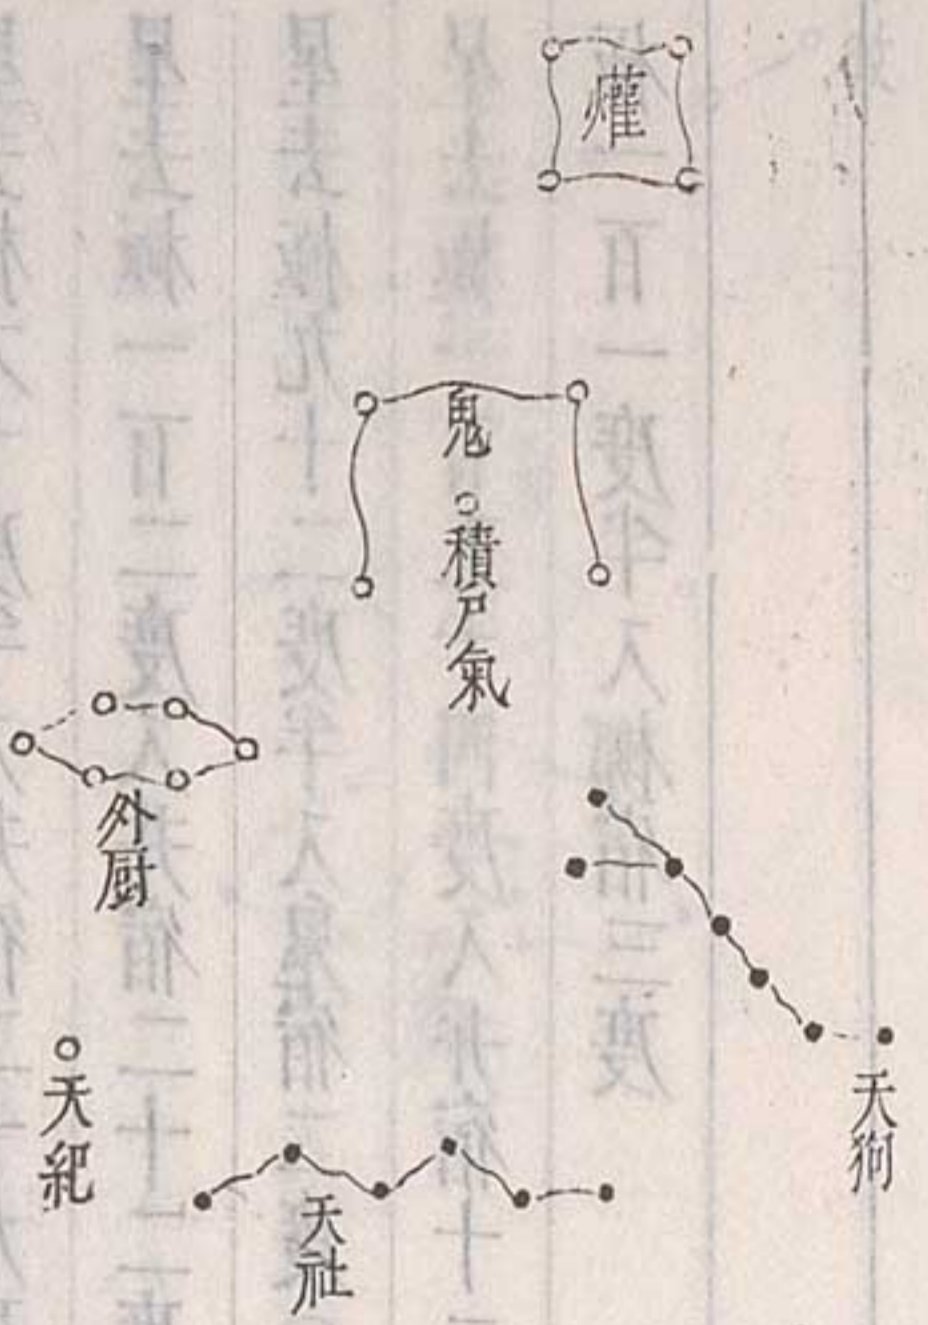 爟
鬼
積尸氣
外厨
天狗
天紀
天社